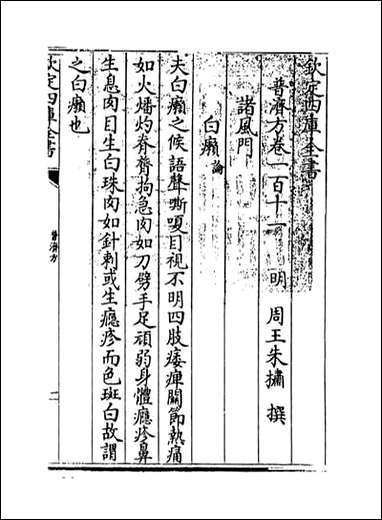 欽定四庫全書
普濟方卷一百十一
明 周王朱橚 撰
諸風門
白癩論
夫白癩之候語聲嘶嗄目視不明四肢痿痺關節熱痛
如火燔灼脊膂拘急肉如刀劈手足頑弱身體癮疹鼻
生息肉目生白珠肉如針刺或生癮疹而色斑白故謂
之白癩也
欽定四庫全書
普濟方